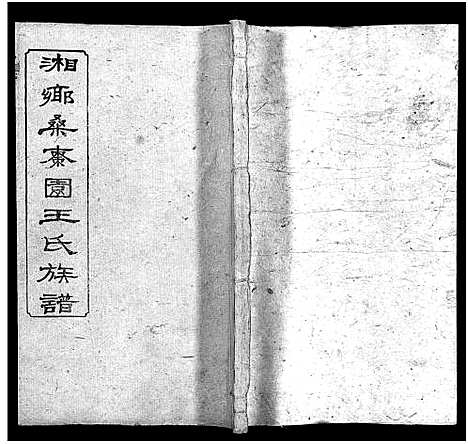 湘鄉桑棗園王氏族譜